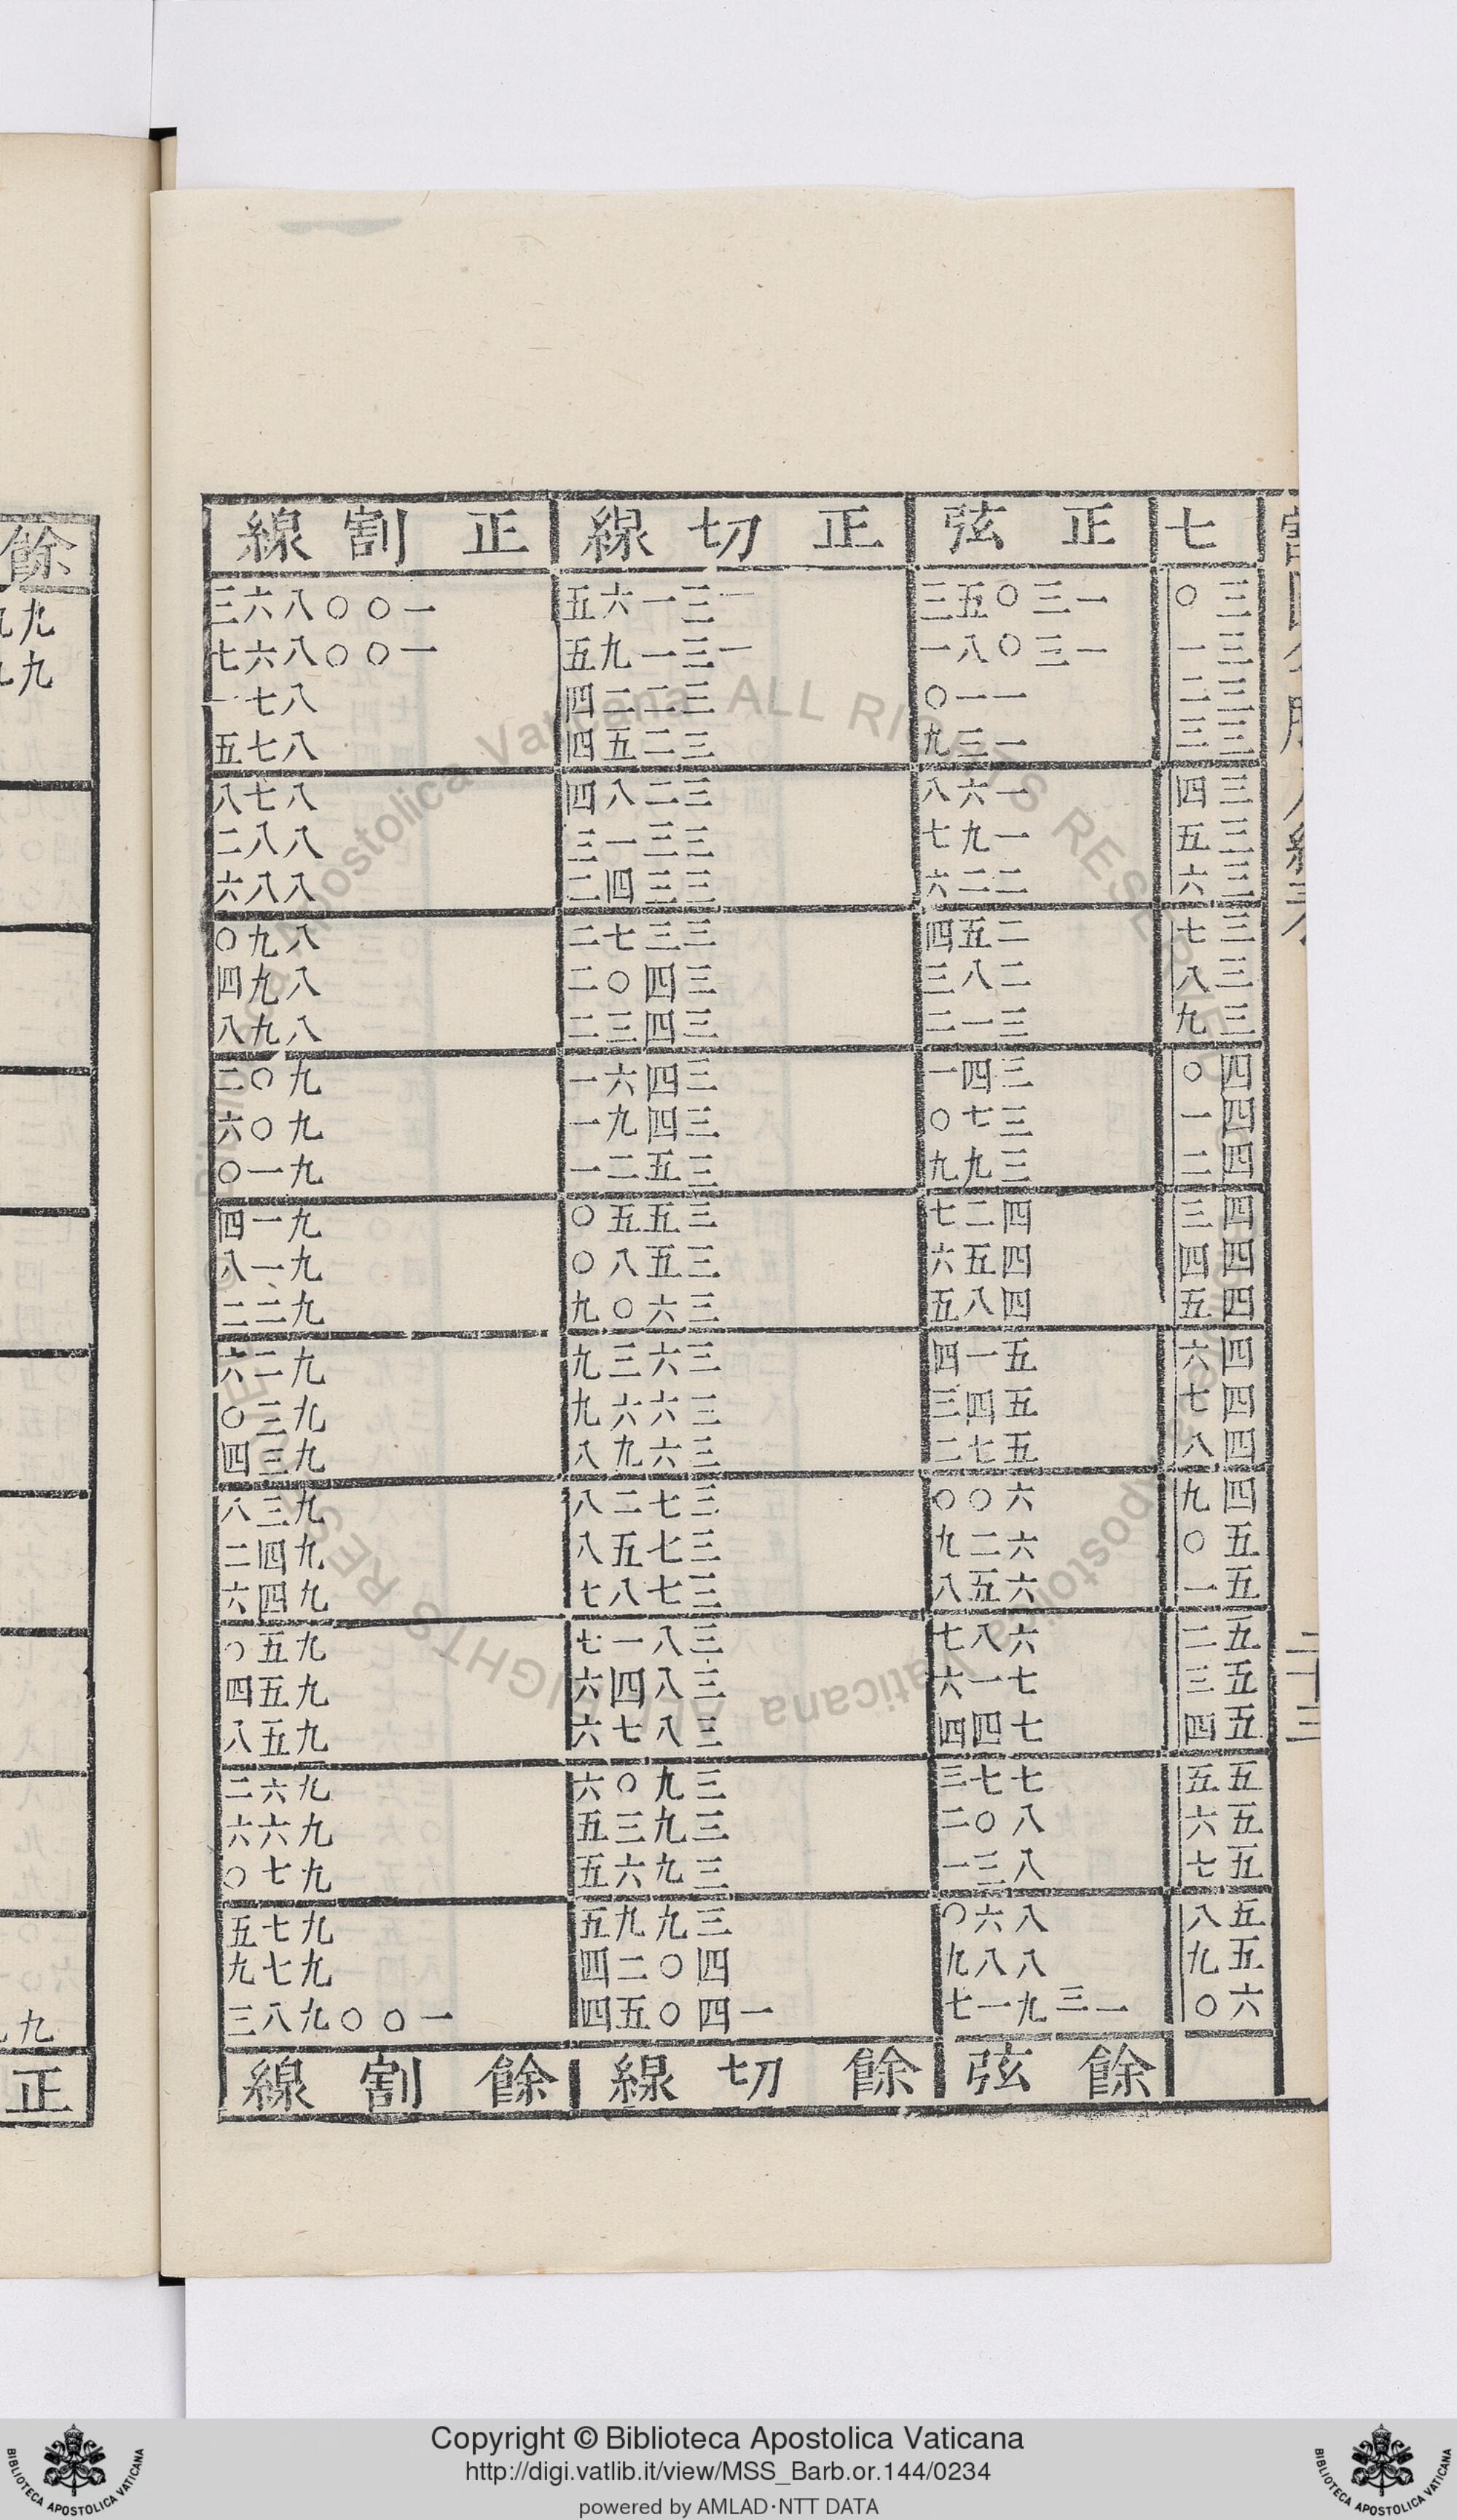 二十三
七 正弦 正切線 正割線
三〇 一三〇五三 一三一六五 一〇〇八六三
三一 一三〇八一 一三一九五 一〇〇八六七
三二 一一〇 三二二四 八七一
三三 一三九 三二五四 八七五
三四 一六八 三二八四 八七八
三五 一九七 三三一三 八八二
三六 二二六 三三四二 八八六
三七 二五四 三三七二 八九〇
三八 二八三 三四〇二 八九四
三九 三一二 三四三二 八九八
四〇 三四一 三四六一 九〇二
四一 三七〇 三四九一 九〇六
四二 三九九 三五二一 九一〇
四三 四二七 三五五〇 九一四
四四 四五六 三五八〇 九一八
四五 四八五 三六〇九 九二二
四六 五一四 三六三九 九二六
四七 五四三 三六六九 九三〇
四八 五七二 三六九八 九三四
四九 六〇〇 三七二八 九三八
五〇 六二九 三七五八 九四二
五一 六五八 三七八七 九四六
五二 六八七 三八一七 九五〇
五三 七一六 三八四六 九五四
五四 七四四 三八七六 九五八
五五 七七三 三九〇六 九六二
五六 八〇二 三九三五 九六六
五七 八三一 三九六五 九七〇
五八 八六〇 三九九五 九七五
五九 八八九 四〇二四 九七九
六〇 一三九一七 一四〇五四 一〇〇九八三
餘弦 餘切線 餘割線
餘
九
九
九
正
Copyright © Biblioteca Apostolica Vaticana
http://digi.vatlib.it/view/MSS_Barb.or.144/0234
powered by AMLAD·NTT DATA